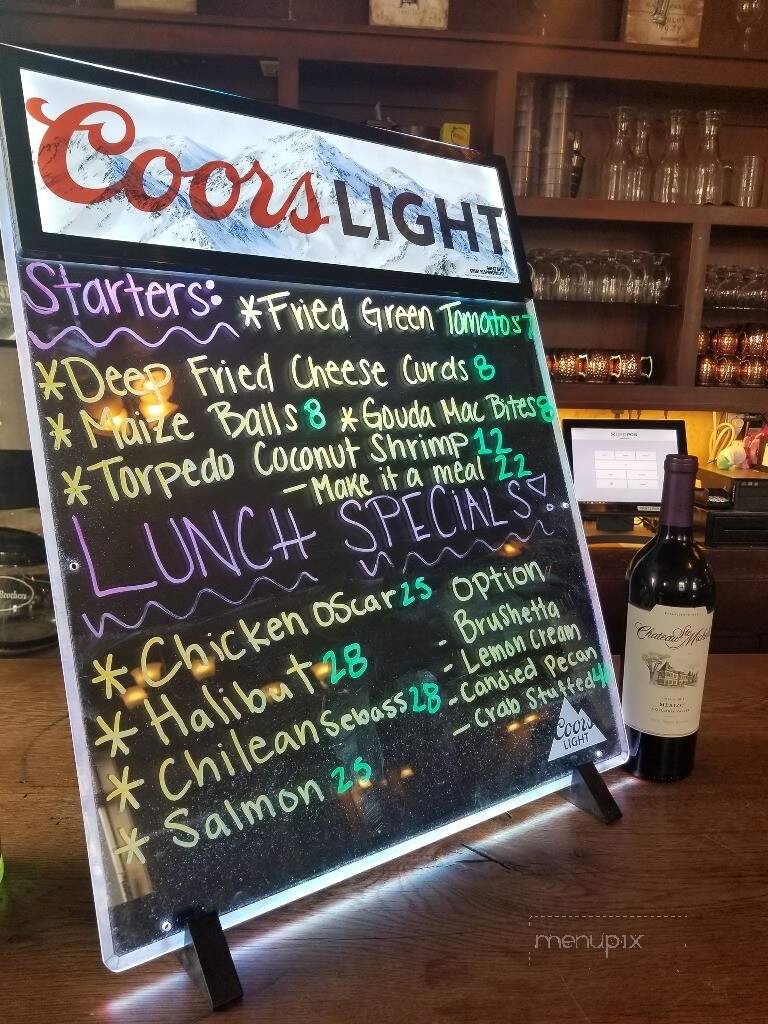 Coors LIGHT
Starters: *Fried Green Tomatos 7
*Deep Fried Cheese Curds 8
*Maize Balls 8 *Gouda Mac Bites 8
*Torpedo Coconut Shrimp 12
-Make it a meal 22
LUNCH SPECIALS!
*Chicken oscar 25
*Halibut 28
*Chilean Sebass 28
*Salmon 25
option
- Brushetta
- Lemon Cream
- Candied Pecan
- Crab Stuffed
Coors
LIGHT
Chateau Ste
MERLOT
menupix